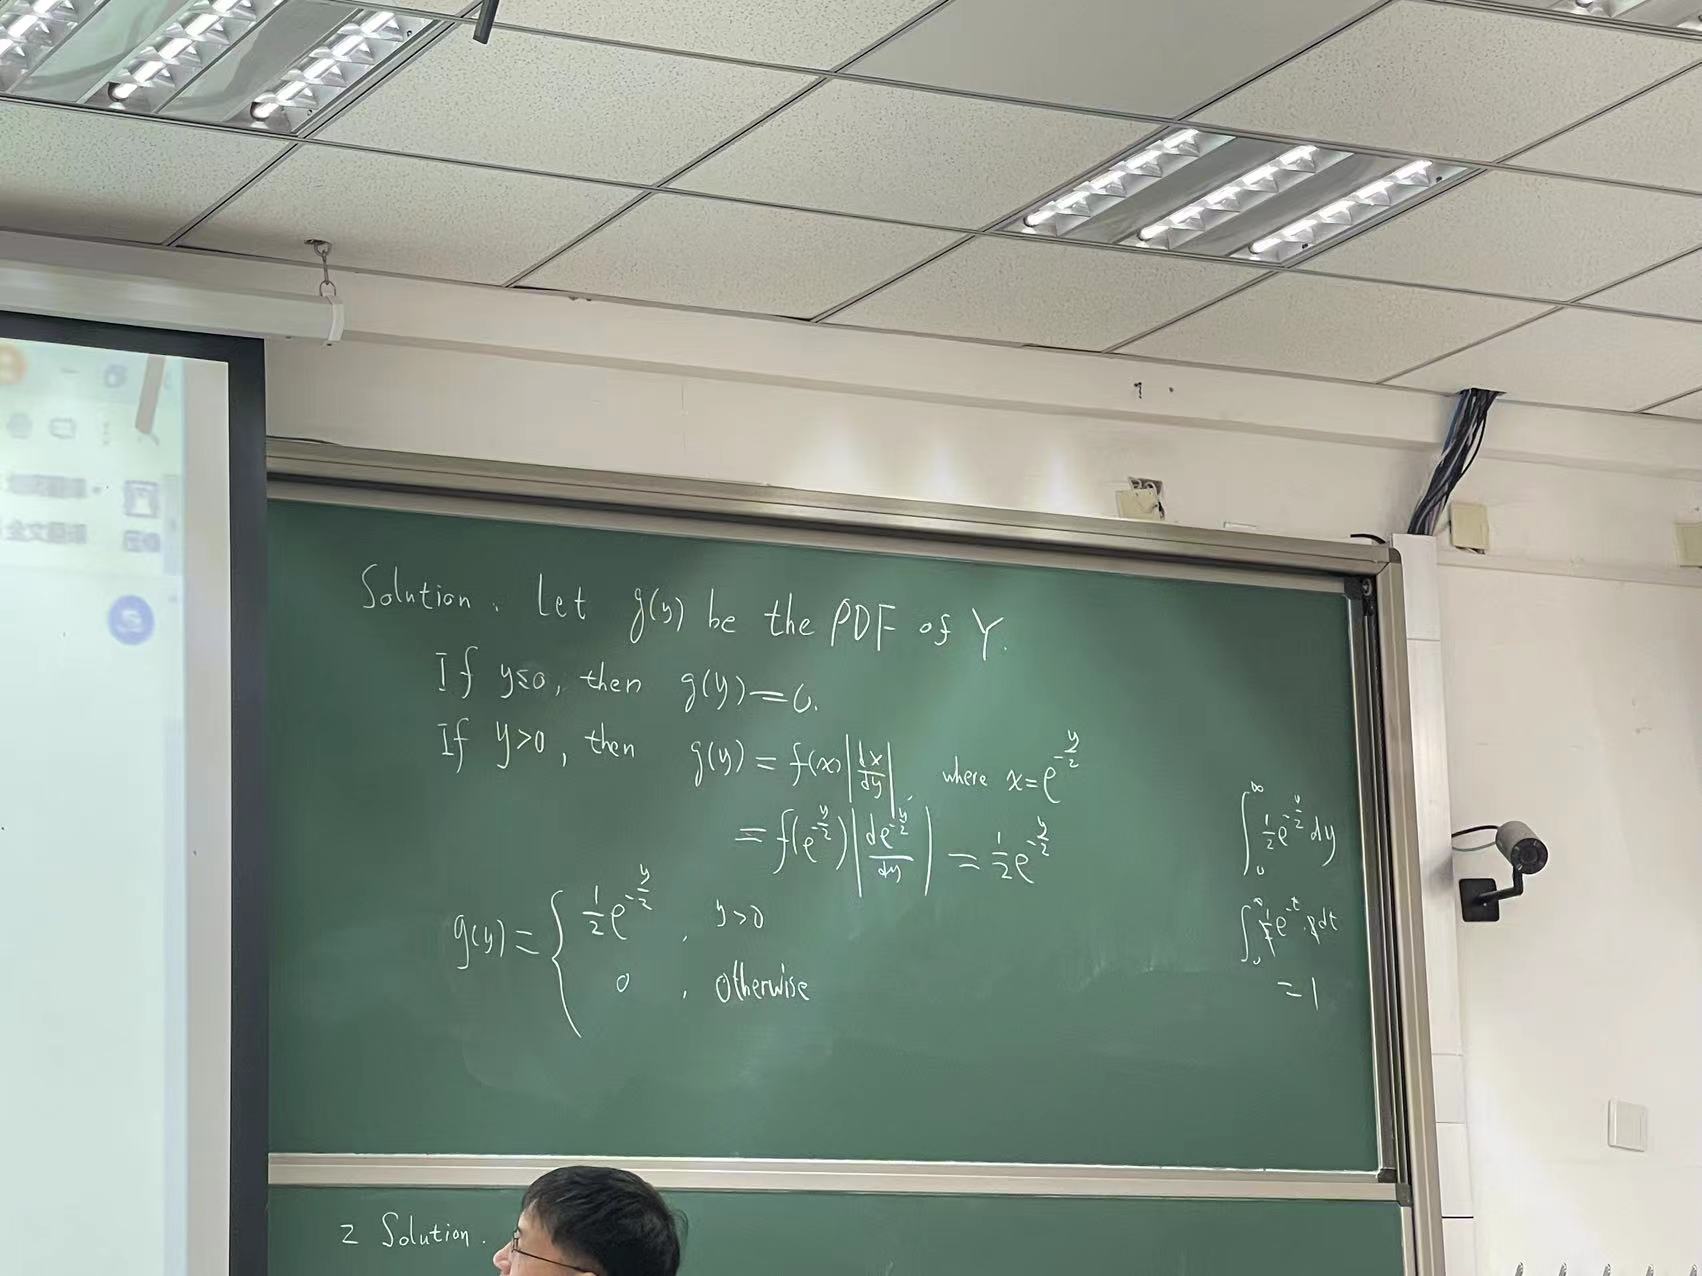 Solution. Let g(y) be the PDF of Y.
If y≤0, then g(y)=0.
If y>0, then g(y) = f(x)|dx/dy|, where x=e^{-y/2}
= f(e^{-y/2})|de^{-y/2}/dy| = 1/2 e^{-y/2}
g(y) = { 1/2 e^{-y/2}, y>0
0, otherwise
∫_0^∞ 1/2 e^{-y/2} dy
=1
2 Solution.